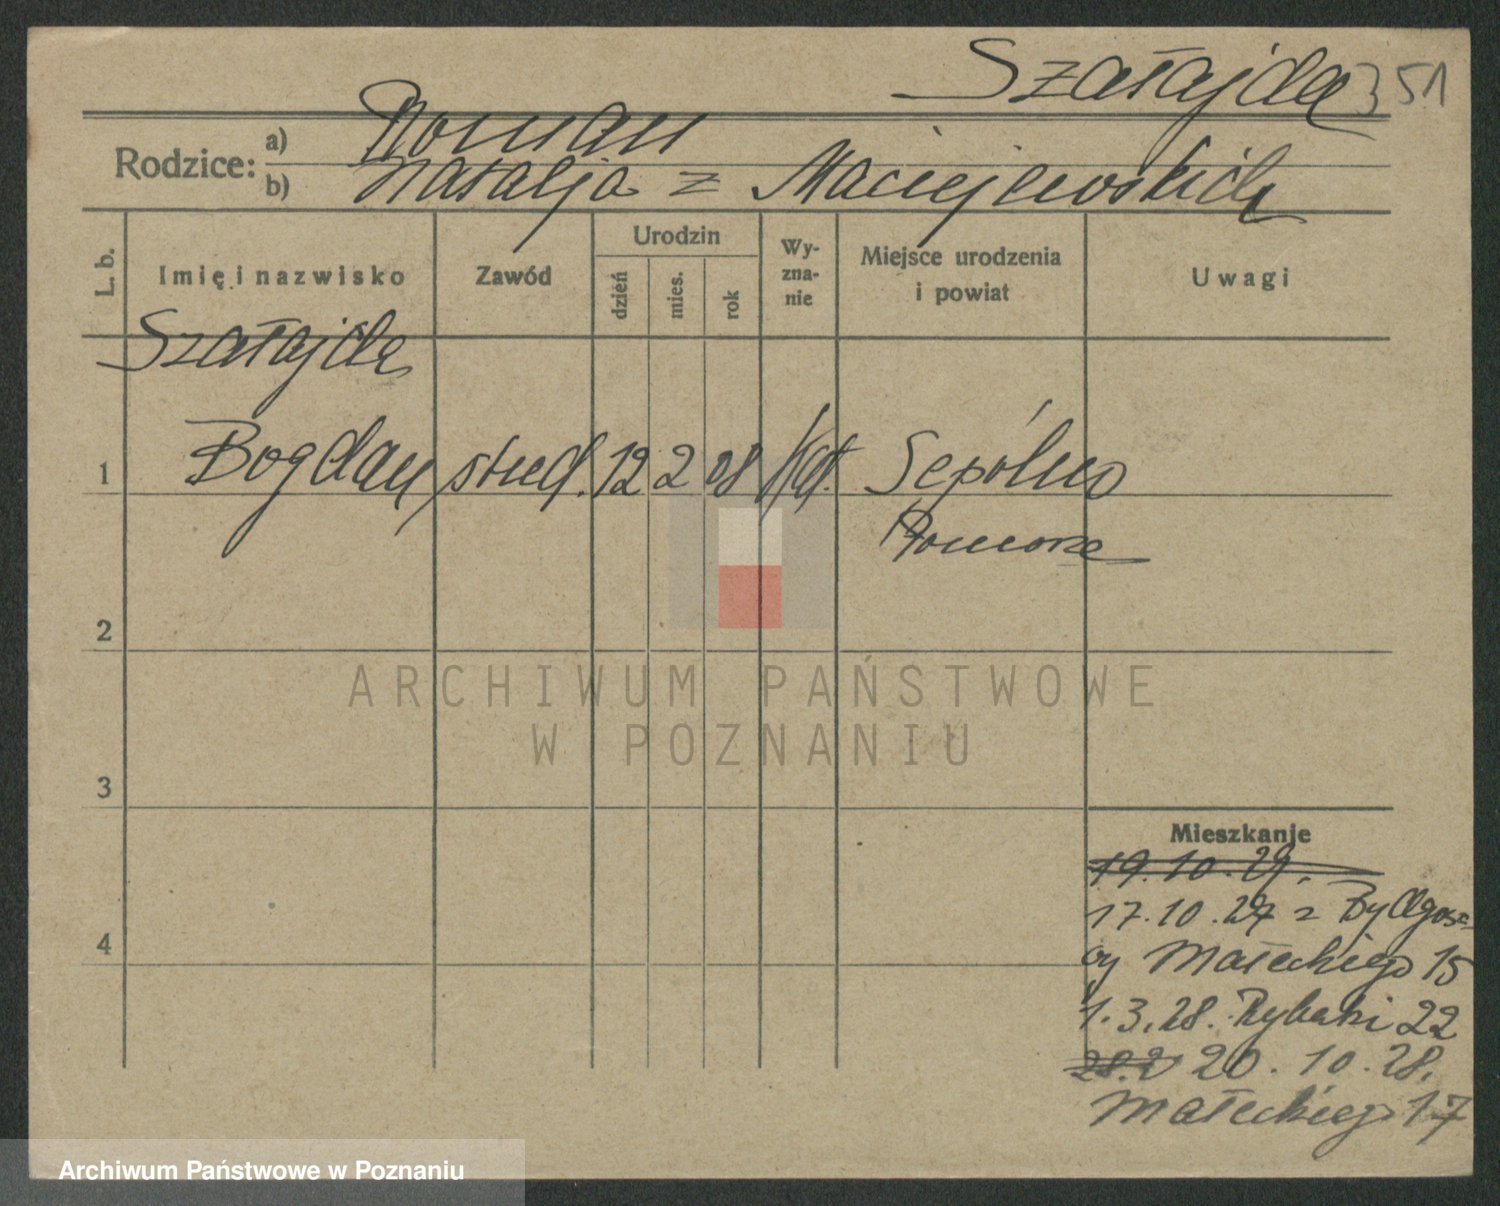 Szałajda 351
Rodzice: a) Roman
b) Natalja z Maciejewskich
L. b.
Imię i nazwisko
Zawód
Urodzin
dzień
mies.
rok
Wy-
zna-
nie
Miejsce urodzenia
i powiat
Uwagi
Szałajda
1 Bogdan stud. 12 2 08 kat. Sepólno
Pomorze
2
3
4
Mieszkanie
19.10.27.
17.10.27 z Bydgosz-
cy Małeckiego 15
1.3.28. Rybaki 22
28.2 20.10.28.
Małeckiego 17
ARCHIWUM PAŃSTWOWE
W POZNANIU
Archiwum Państwowe w Poznaniu